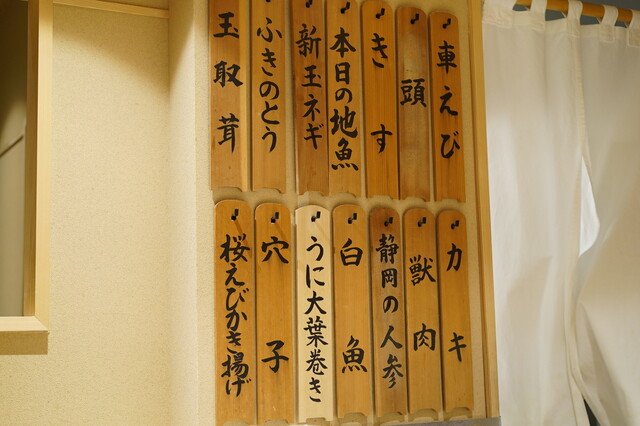 車えび
頭
きす
本日の地魚
新玉ネギ
ふきのとう
玉取茸
カキ
獣肉
静岡の人参
白魚
うに大葉巻き
穴子
桜えびかき揚げ